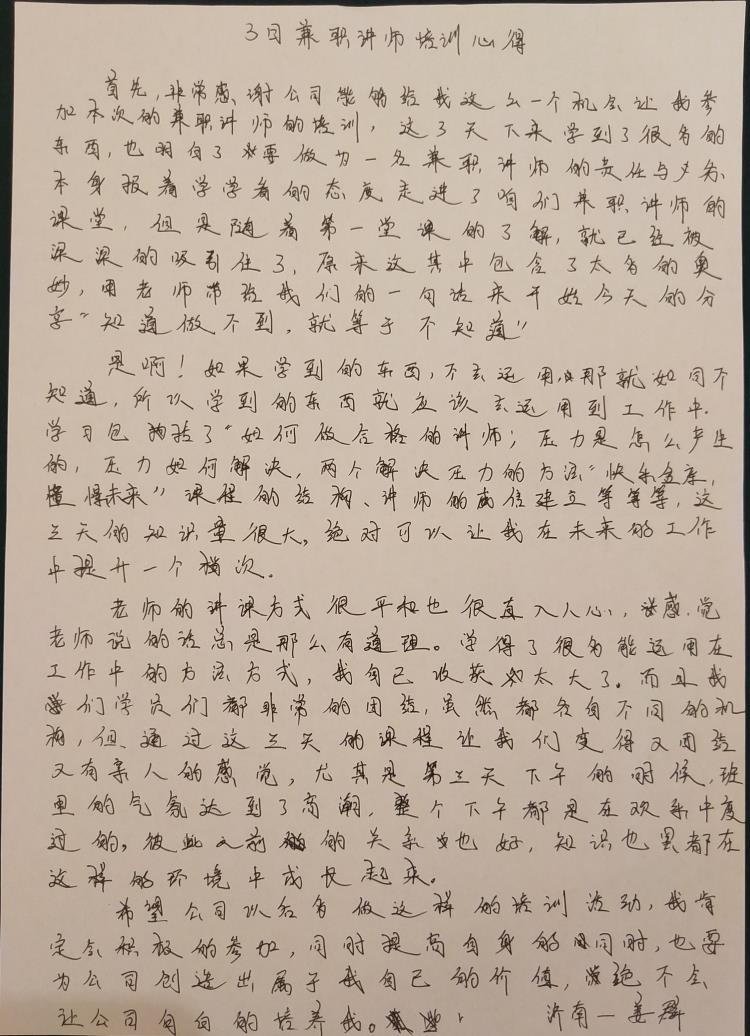 3日兼职讲师培训心得
首先,非常感谢公司能够给我这么一个机会让我参
加本次的兼职讲师的培训,这3天下来学到了很多的
东西,也明白了要做为一名兼职讲师的责任与义务
本身报着学学看的态度走进了咱们兼职讲师的
课堂,但是随着第一堂课的了解,就已经被
深深的吸引住了,原来这其中包含了太多的奥
妙,用老师带给我们的一句话来开始今天的分
享"知道做不到,就等于不知道"
是啊!如果学到的东西,不去运用,那就如同不
知道,所以学到的东西就应该去运用到工作中.
学习包括了"如何做合格的讲师;压力是怎么产生
的,压力如何解决,两个解决压力的方法"快乐至库,
憧憬未来"课程的结构、讲师的威信建立等等等,这
三天的知识量很大,绝对可以让我在未来的工作
中提升一个档次。
老师的讲课方式很平和也很直入人心,感觉
老师说的话总是那么有道理。学得了很多能运用在
工作中的方法方式,我自己收获太大了。而且我
们学员们都非常的团结,虽然都各自不同的机
构,但通过这三天的课程让我们变得又团结
又有亲人的感觉,尤其是第三天下午的时候,班
里的气氛达到了高潮,整个下午都是在欢乐中度
过的。彼此之前的关系也好,知识也罢都在
这样的环境中成长起来。
希望公司以后多做这样的培训活动,我肯
定会积极的参加,同时提高自身的同时,也要
为公司创造出属于我自己的价值,绝不会
让公司白白的培养我。
济南—姜